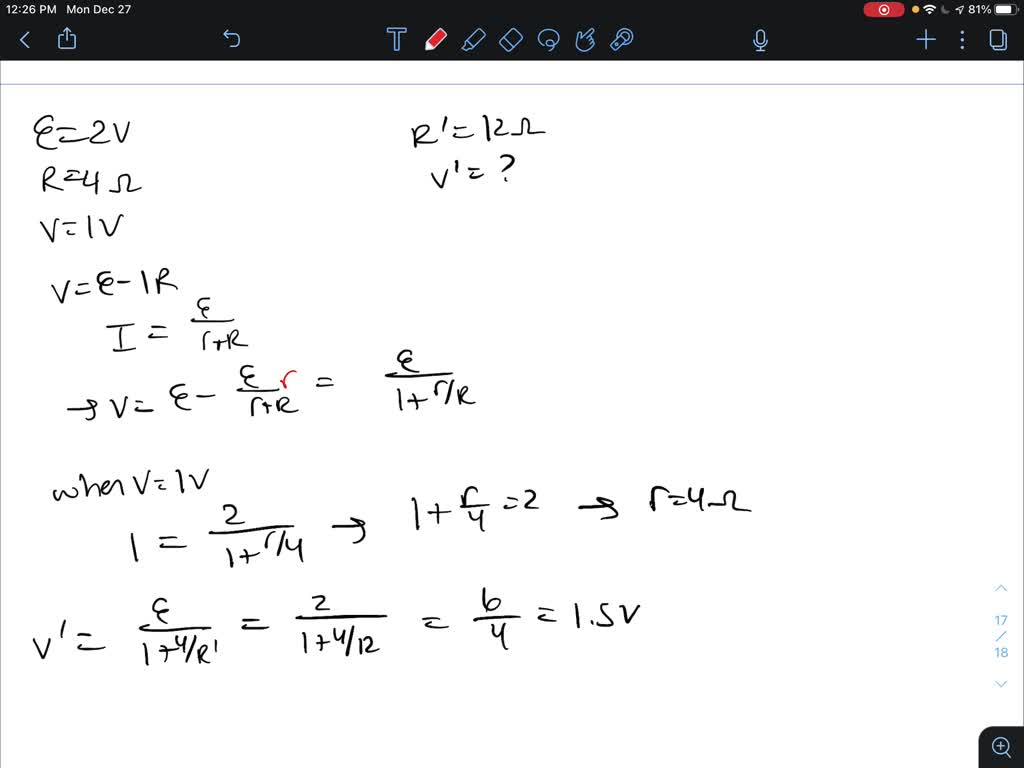 12:26 PM Mon Dec 27
81%
T
ε=2V
R=4Ω
V=1V
R'=12Ω
V'=?
V=ε-IR
I=ε/(r+R)
→V=ε-εr/(r+R)=ε/(1+r/R)
when V=1V
1=2/(1+r/4)→1+r/4=2→r=4Ω
V'=ε/(1+4/R')=2/(1+4/12)=6/4=1.5V
17
/
18